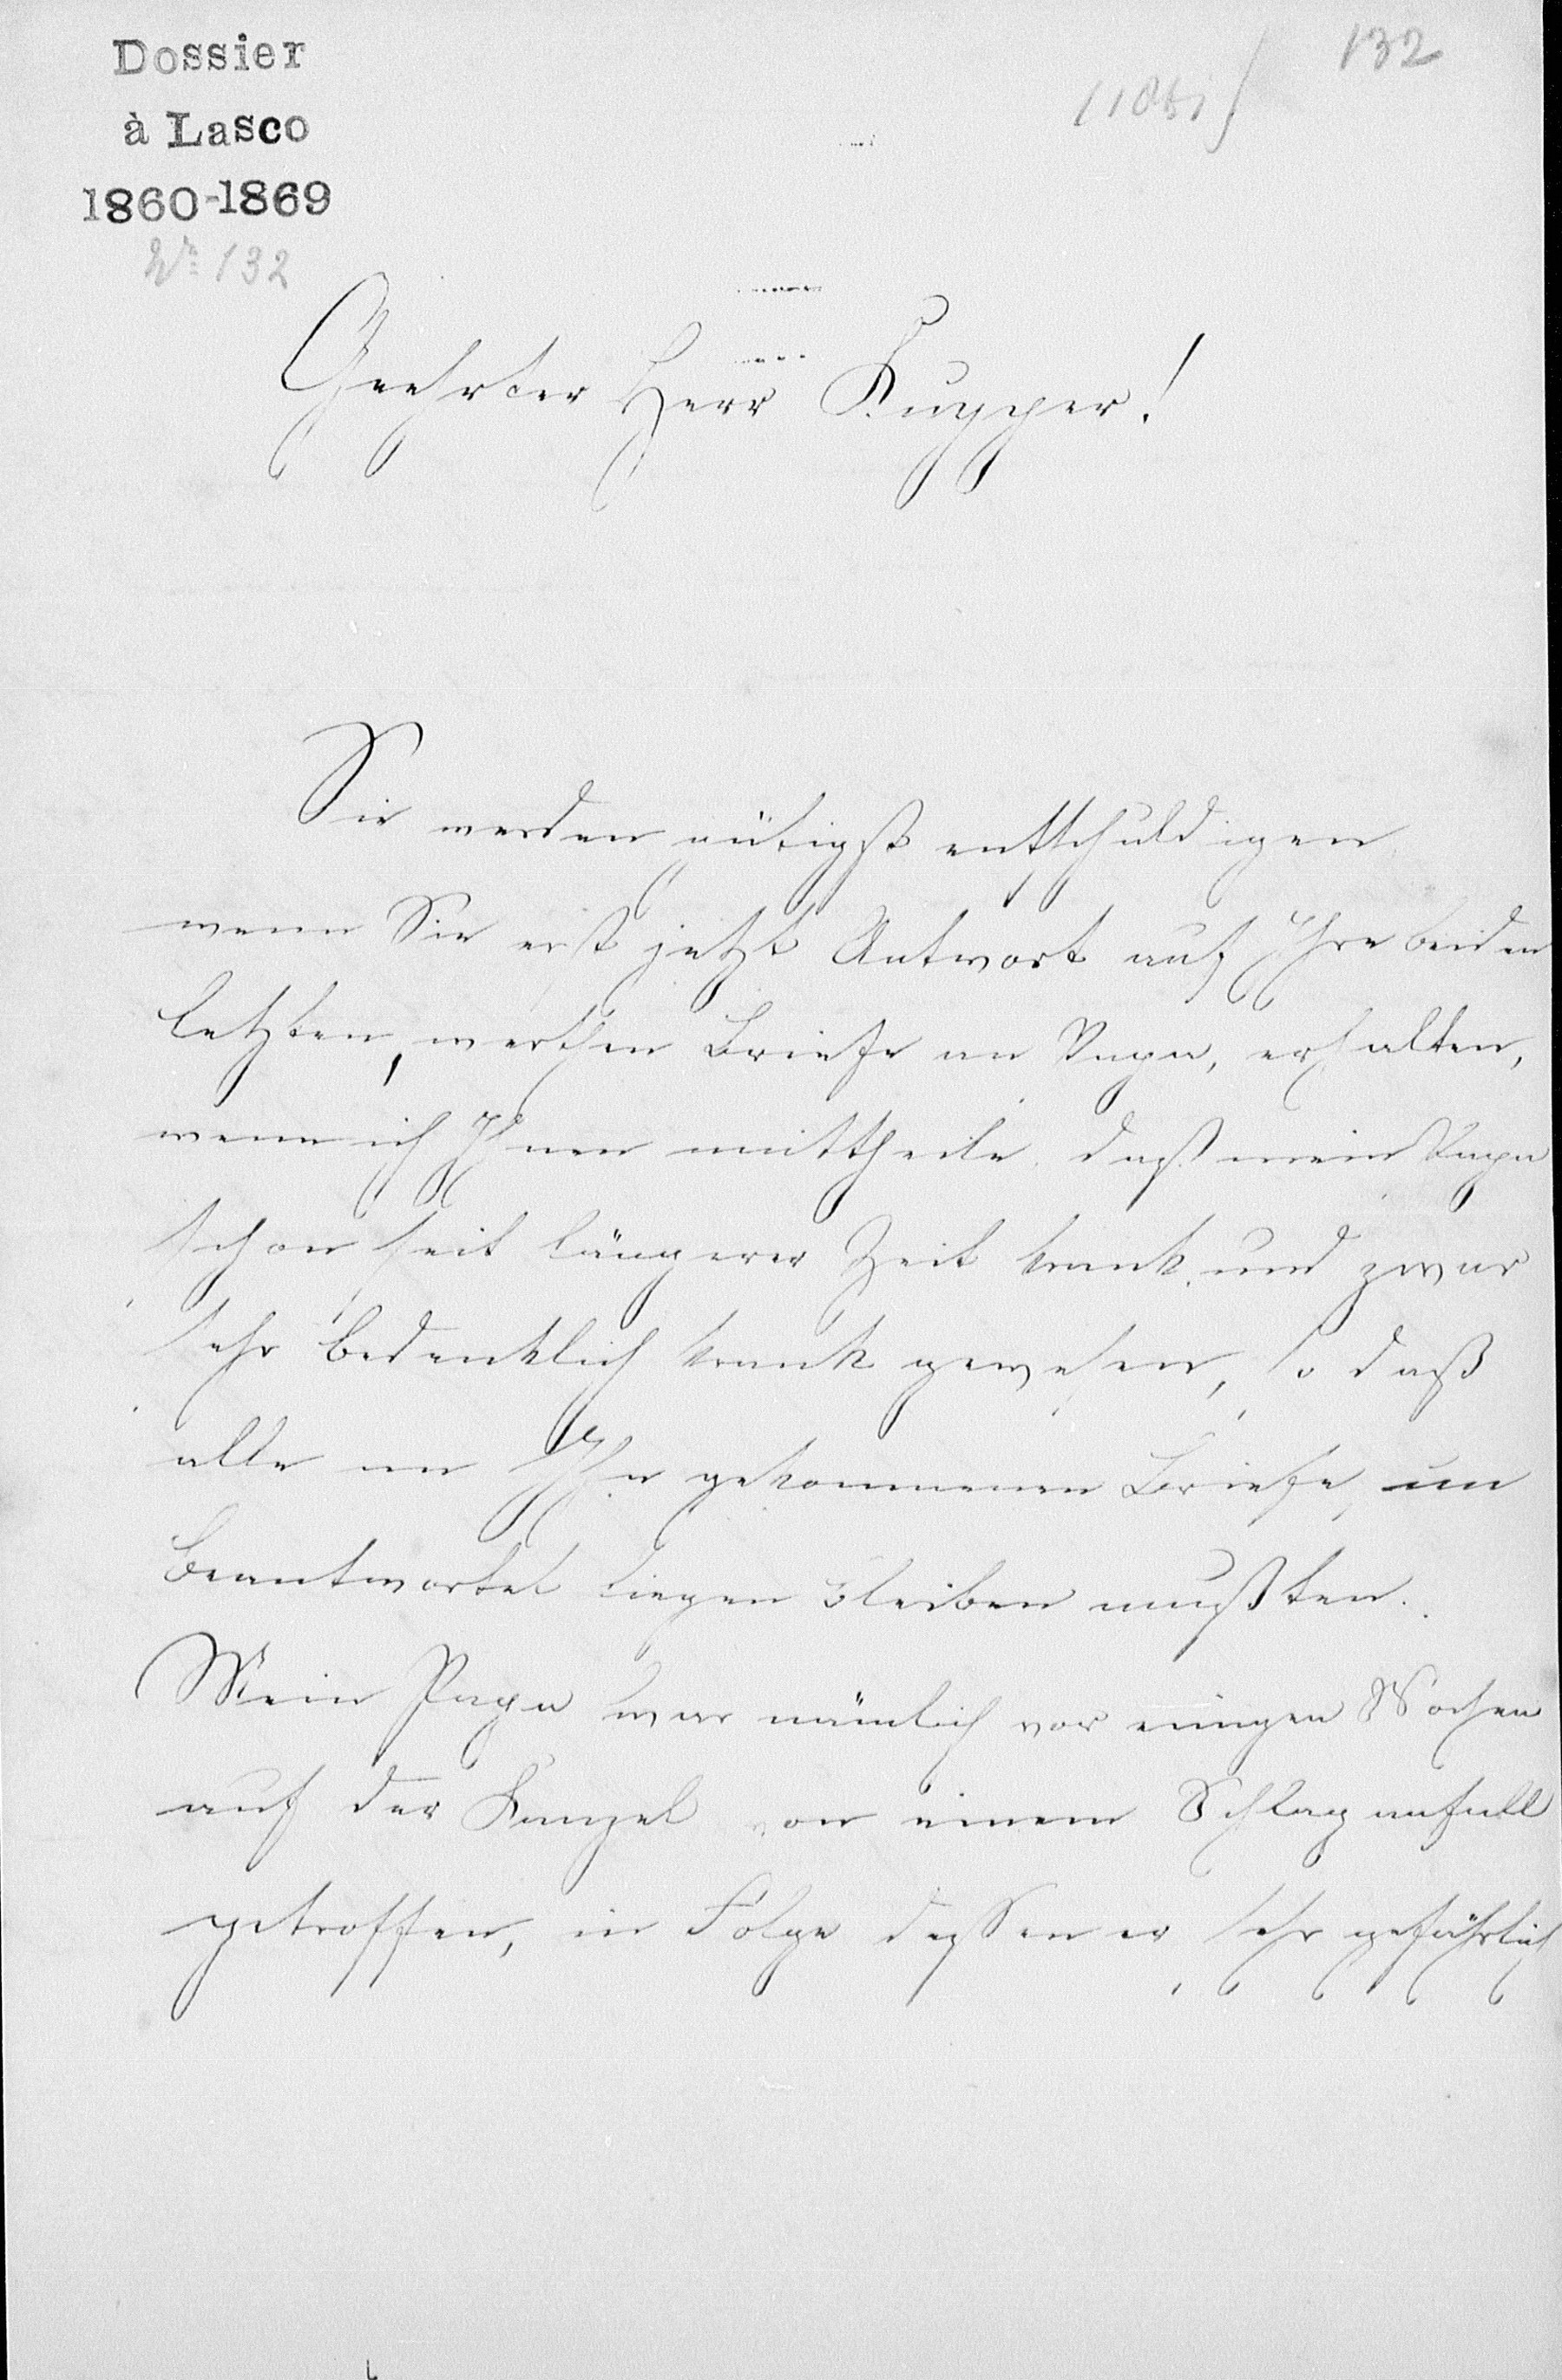 Dossier
à Lasco
1860-1869
Nr. 132
132
Geehrter Herr Kuyper!
Sie werden gütigst entschuldigen
wenn Sie erst jetzt Antwort auf Ihre beiden
letzten, werthen Briefe an Papa, erhalten,
wenn ich Ihnen mittheile, daß mein Papa
schon seit längerer Zeit krank und zwar
sehr bedenklich krank gewesen, so daß
alle an Ihn gekommenen Briefe un
beantwortet liegen bleiben mußten.
Mein Papa war nämlich vor einigen Wochen
auf der Kanzel von einem Schlaganfall
getroffen, in Folge dessen er sehr gefährlich